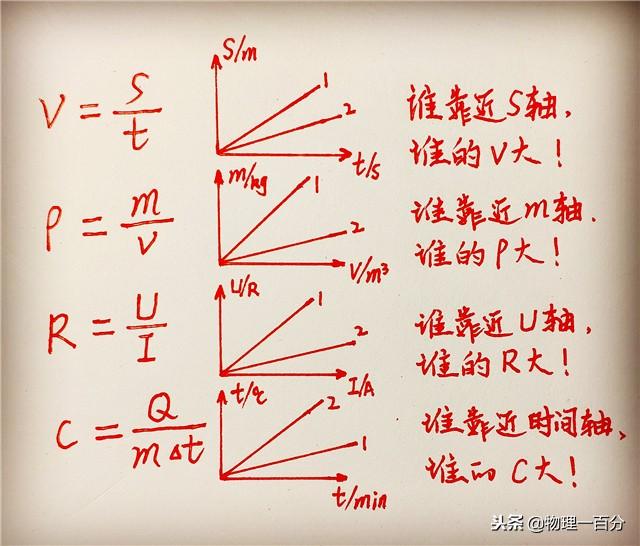 V = S/t
S/m
1
2
t/s
谁靠近S轴,
谁的V大!
ρ = m/V
m/kg
1
2
V/m³
谁靠近m轴.
谁的ρ大!
R = U/I
U/R
1
2
I/A
谁靠近U轴,
谁的R大!
C = Q/m△t
t/℃
2
1
t/min
谁靠近时间轴,
谁的C大!
头条 @物理一百分